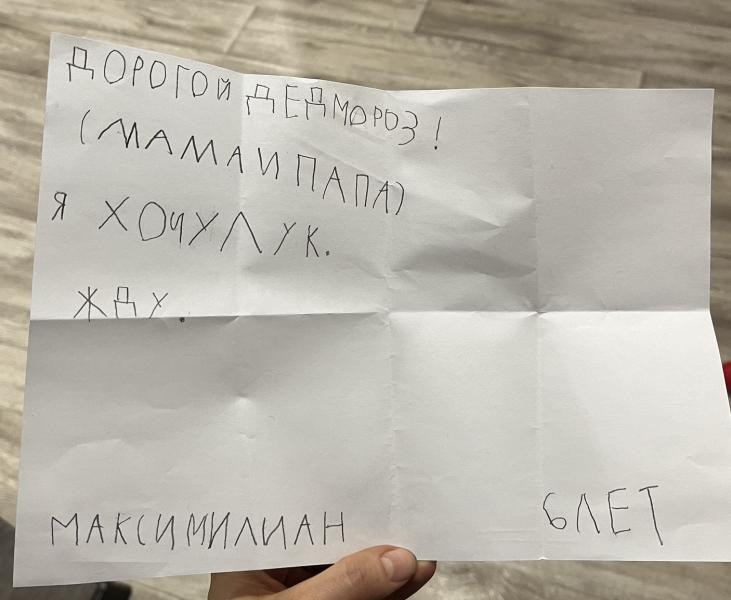 ДОРОГОЙ ДЕДМОРОЗ!
(МАМА И ПАПА)
Я ХОЧУЛУК.
ЖДУ.
МАКСИМИЛИАН 6 ЛЕТ